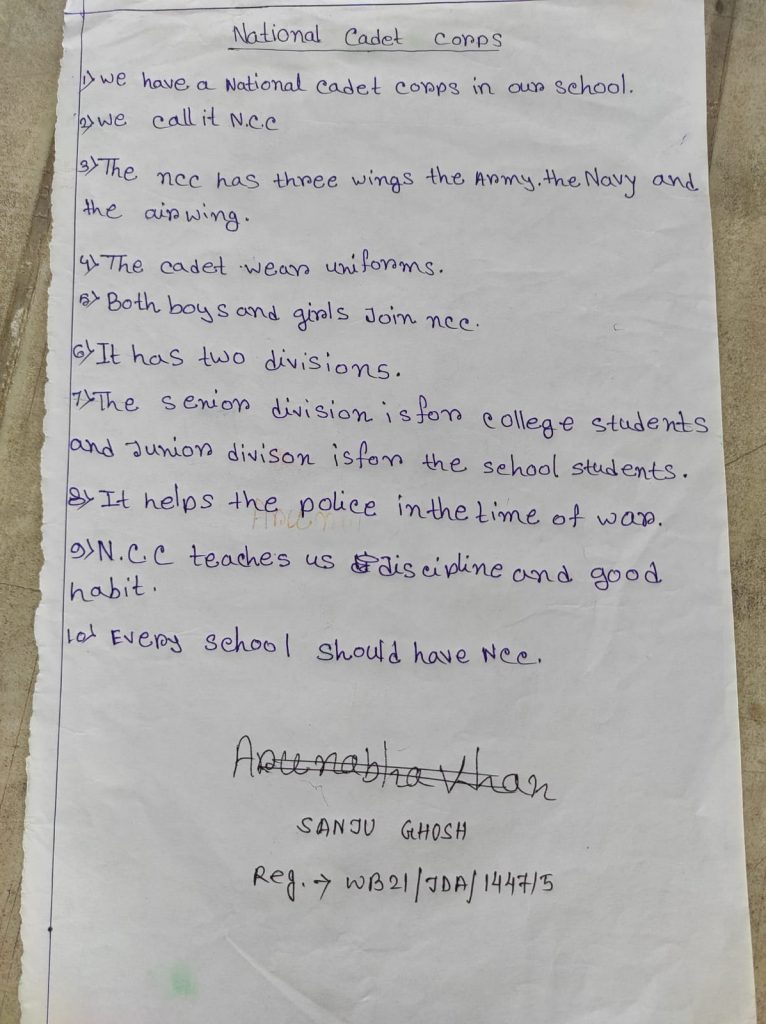 National Cadet Corps
1) we have a National cadet corps in our school.
2) we call it N.C.C
3) The ncc has three wings the Army. the Navy and
the air wing.
4) The cadet wear uniforms.
5) Both boys and girls Join ncc.
6) It has two divisions.
7) The senior division is for college students
and Junior divison is for the school students.
8) It helps the police in the time of war.
9) N.C.C teaches us discipline and good
habit.
10) Every school should have Ncc.
Arunabha Khan
SANJU GHOSH
Reg. → WB21/JDA/1447/5